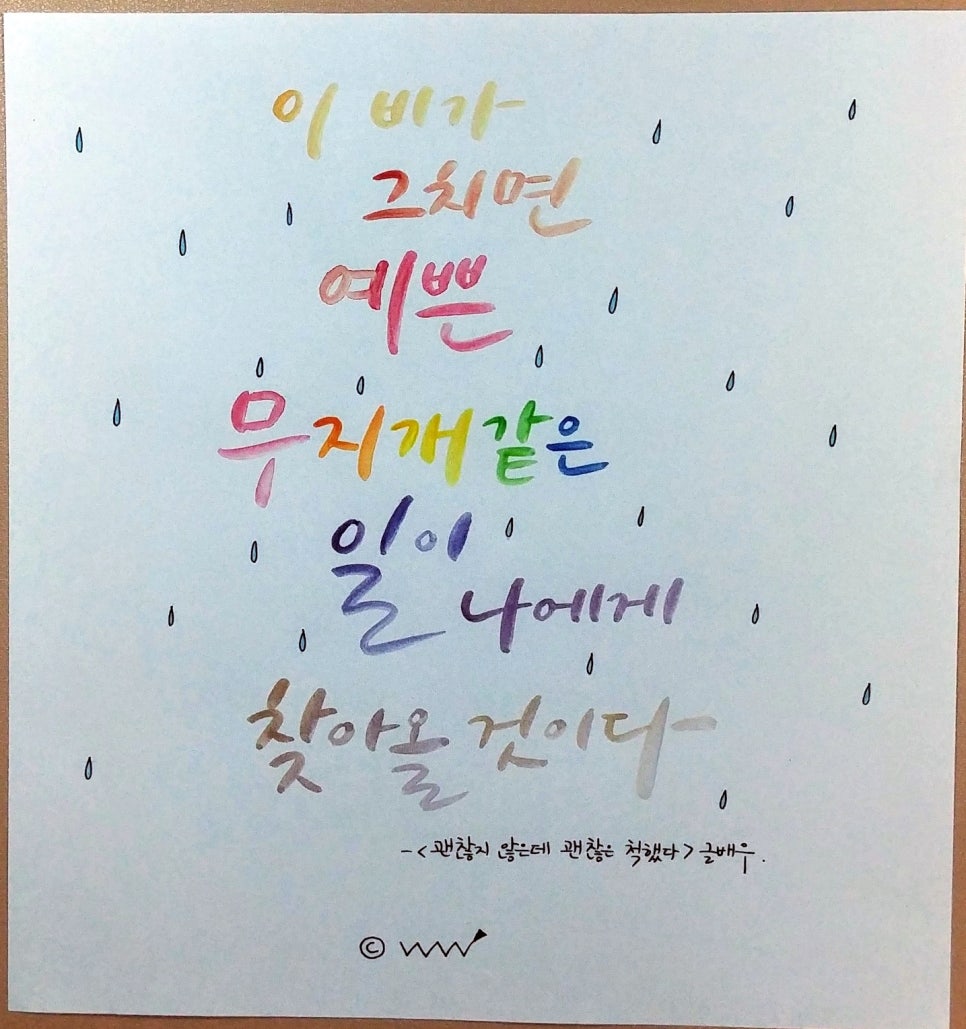 이 비가
그치면
예쁜
무지개같은
일이
나에게
찾아올 것이다
-<괜찮지 않은데 괜찮은 척했다> 글배우.
©